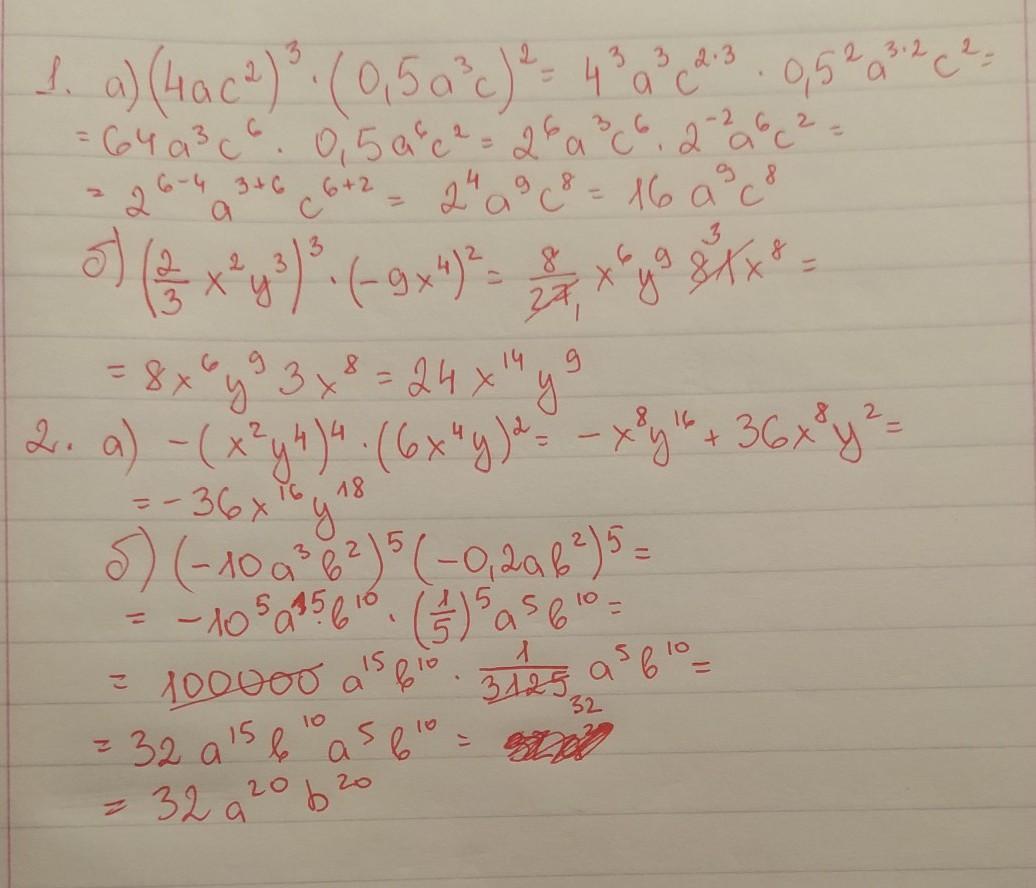 1. а) (4ac²)³ · (0,5a³c)² = 4³a³c²·³ · 0,5²a³·²c² =
= 64a³c⁶ · 0,5a⁶c² = 2⁶a³c⁶ · 2⁻²a⁶c² =
= 2⁶⁻⁴ a³⁺⁶ c⁶⁺² = 2⁴a⁹c⁸ = 16a⁹c⁸
б) (2/3 x²y³)³ · (-9x⁴)² = 8/27₁ x⁶y⁹ 81³x⁸ =
= 8x⁶y⁹3x⁸ = 24x¹⁴y⁹
2. а) -(x²y⁴)⁴ · (6x⁴y)² = -x⁸y¹⁶ + 36x⁸y² =
= -36x¹⁶y¹⁸
б) (-10a³b²)⁵ (-0,2ab²)⁵ =
= -10⁵a¹⁵b¹⁰ · (1/5)⁵a⁵b¹⁰ =
= 100000 a¹⁵b¹⁰ · 1/3125 a⁵b¹⁰ =
32
= 32a¹⁵b¹⁰a⁵b¹⁰ =
= 32a²⁰b²⁰